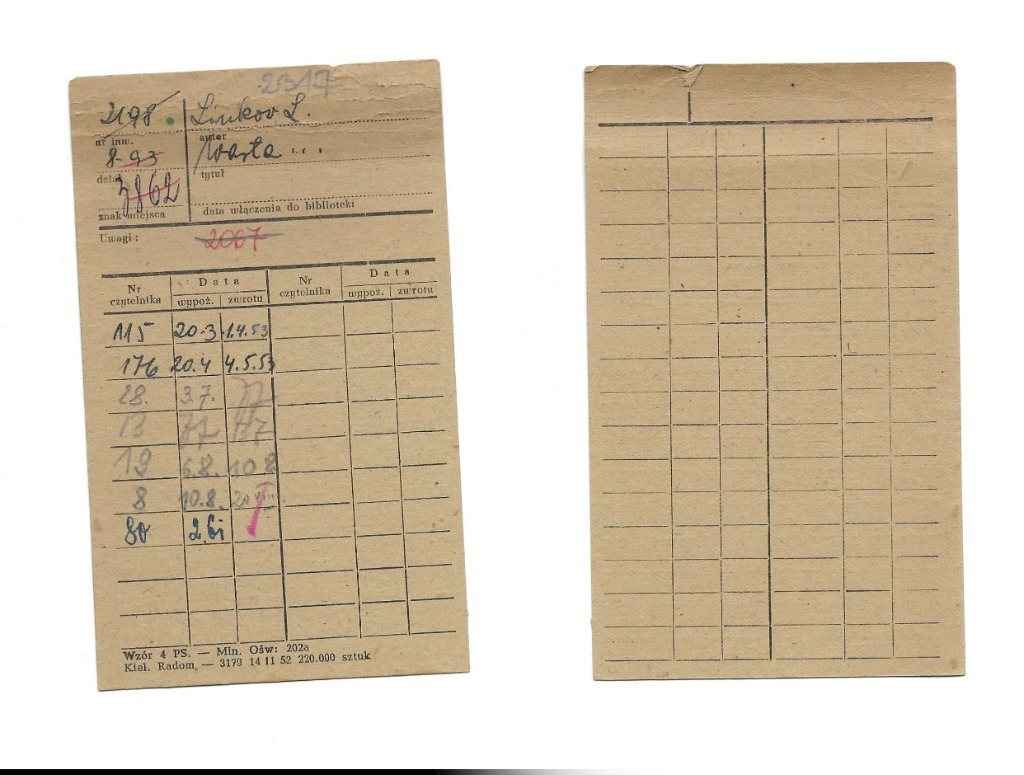 2317
2198 Linkov L.
nr inw. autor
8-93 Warta ...
dział tytuł
3862
znak miejsca data włączenia do biblioteki
Uwagi : 2007
Nr czytelnika Data wypoż. zwrotu Nr czytelnika Data wypoż. zwrotu
115 20.3 1.4.53
176 20.4 4.5.53
28. 3.7.
13
19 6.8. 10.8
8 10.8.
80
Wzór 4 PS. — Min. Ośw: 202a
Kiel. Radom — 3179 14 11 52 220.000 sztuk